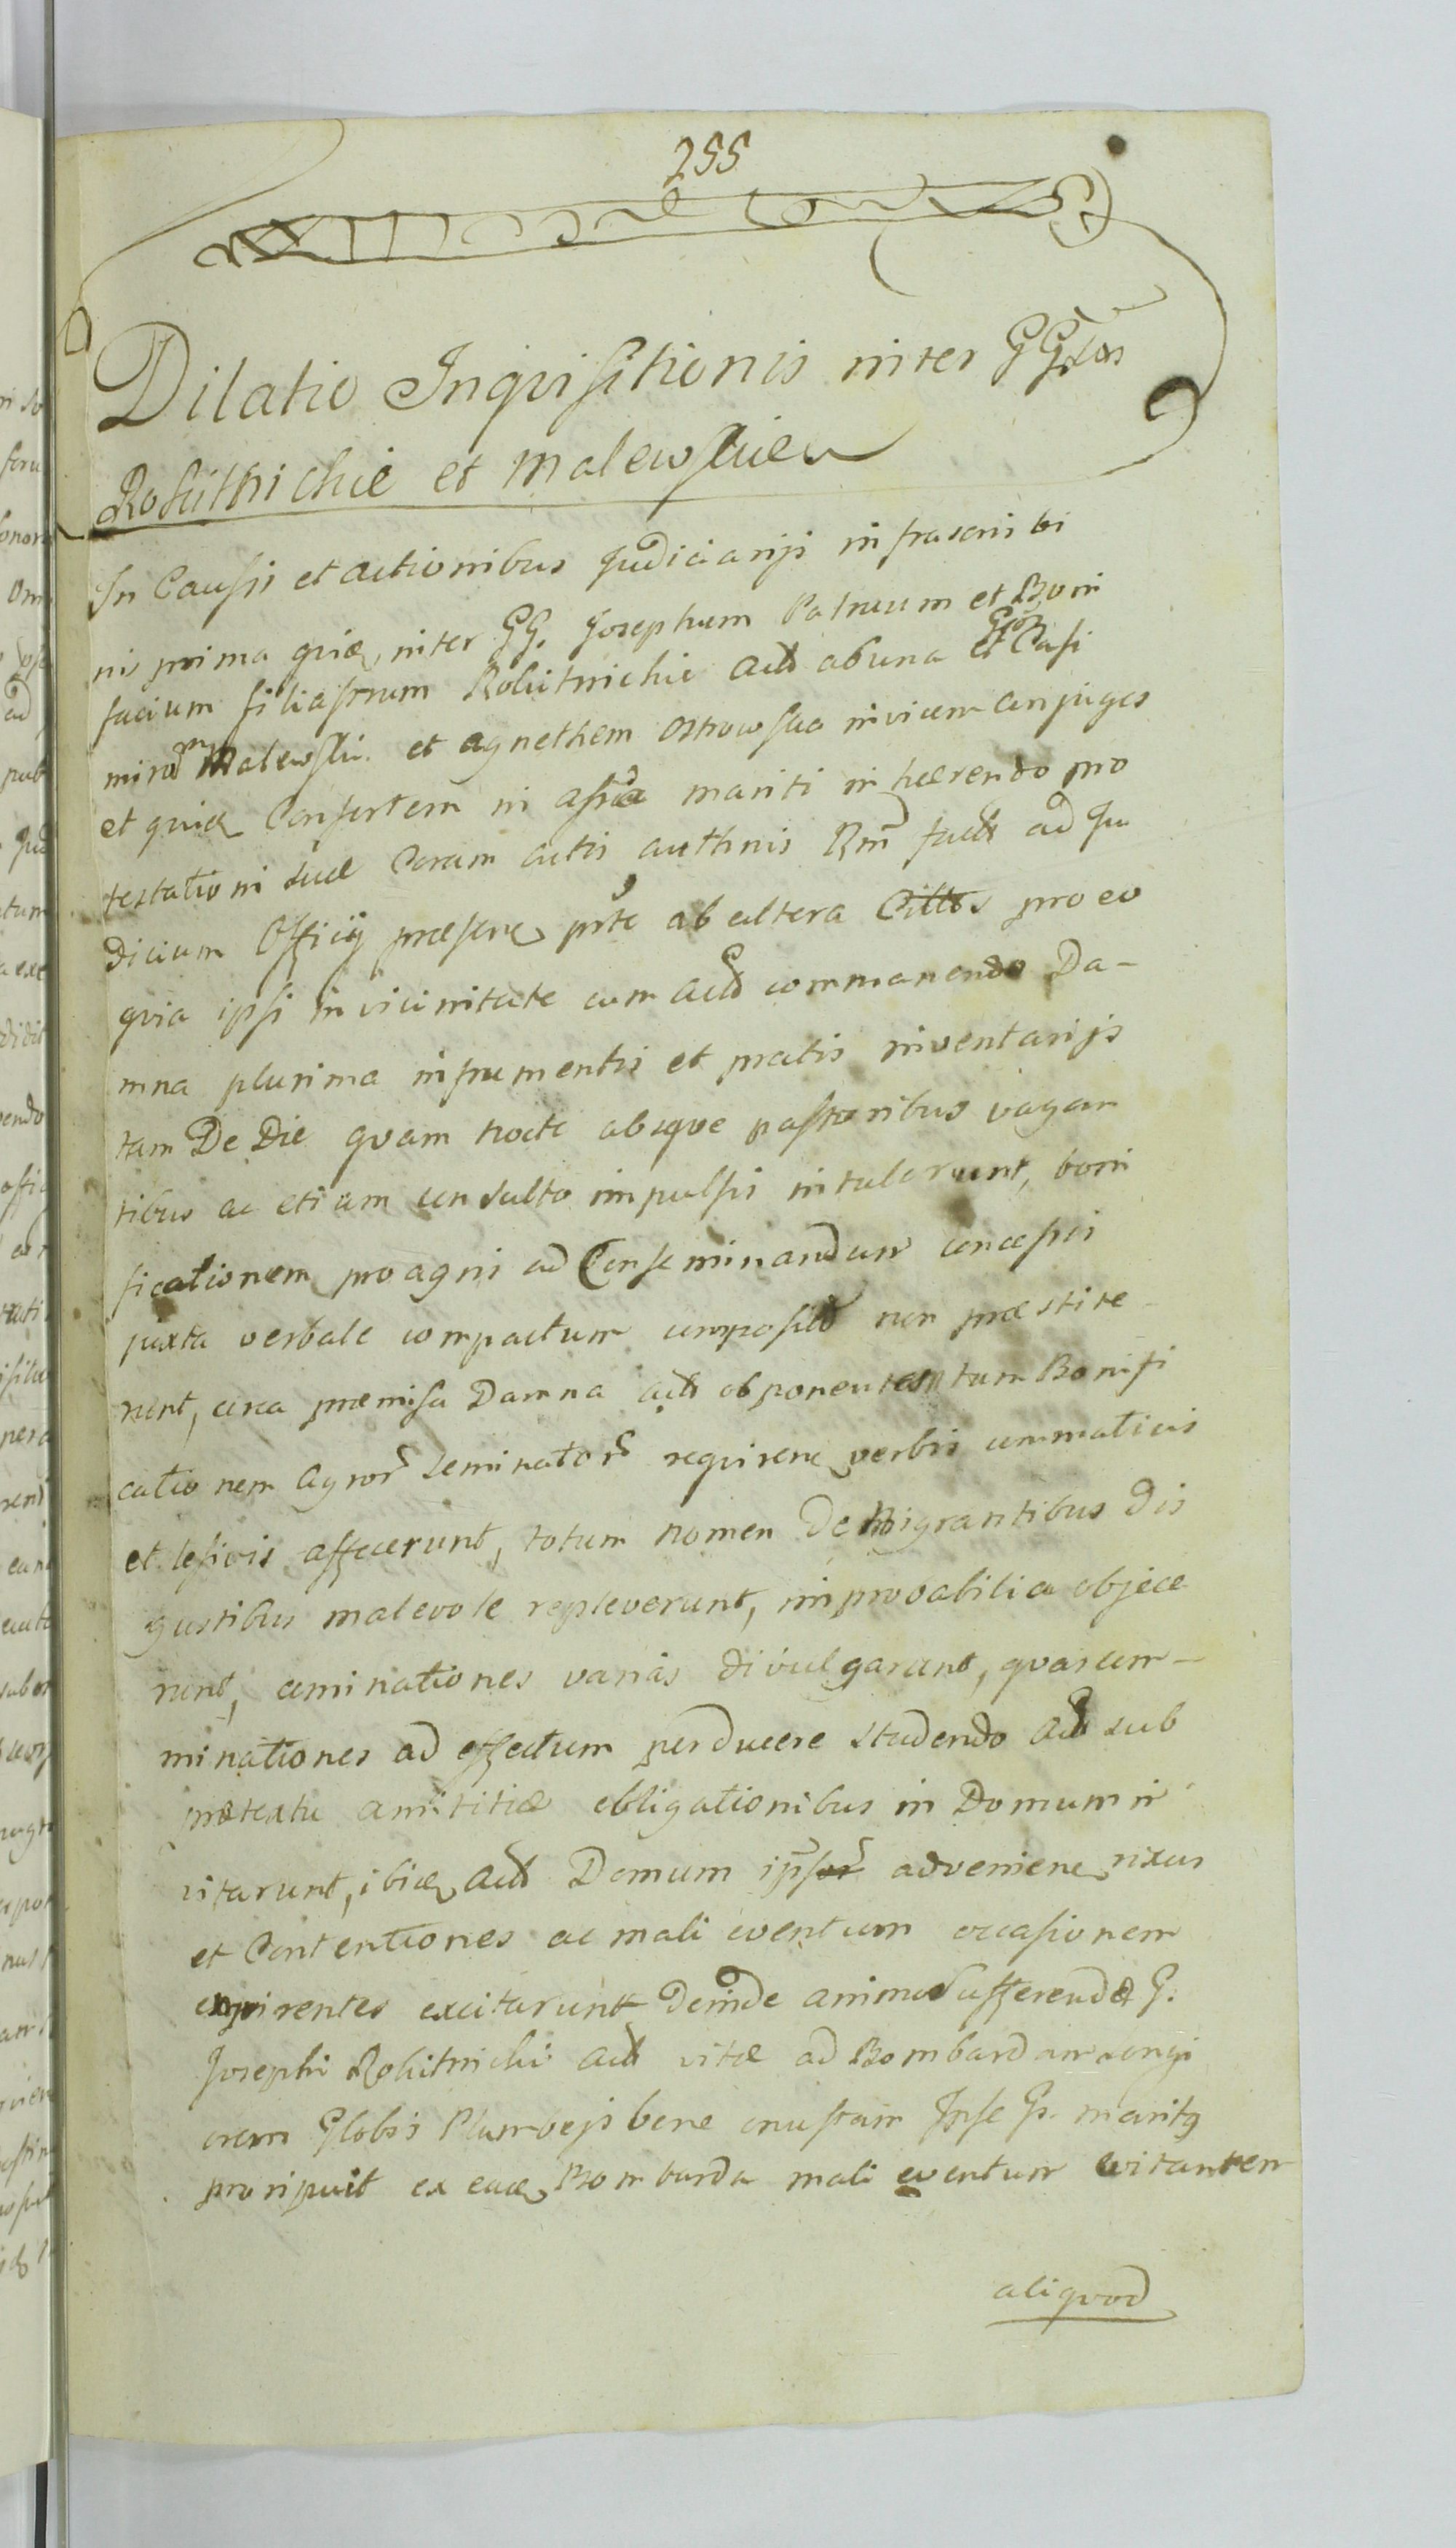 255
Dilatio Inqvisitionis inter GG.
Rokitnickie et Malewskie
In Causis et actionibus Judiciarijs infrascribi
nis prima quidem inter GG. Josephum Patruum et Boni
facium filiastrum Rokitnickie Act ab una et Gsos Casi
mirum Malewski et Agnethem Ostrowska invicem conjuges
et quidem Consortem in assia mariti inhærendo pro
testationi suæ Coram actis authnis fact ad Ju
dicium Officij præsens prte ab altera Cittos pro eo
qvia ipsi in vicinitate cum Act commanendo Da-
mna plurima in frumentis et pratis inventarijs
tam De Die qvam nocte absqve pastoribus vagan
tibus ac etiam consulto impulsis intulerunt, boni
ficationem pro agris ad Conseminandum concessis
juxta verbale compactum composit non præstite
runt, circa præmissa Damna act obponentes tum Bonifi
cationem Agror Seminator reqvirens verbis cummaticis
et lesivis affecerunt, totum nomen Denigrantibus Dis
gustibus malevole repleverunt, improbabilia objece
runt, cominationes varias divulgarunt, qvas com-
minationes ad effectum perducere studendo Act sub
prætextu amititiæ obligationibus in Domum in
vitarunt, ibidem Act Domum ipsor adveniens rixas
et Contentiones ac mali eventum occasionem
exqvirentes excitarunt Deinde animo Aufferendæ G.
Josephi Rokitnicki Act vitæ ad Bombardam longi
orem Globis Plumbejs bene onustam Ipse G. maritus
proripuit ex eadem Bombarda mali eventum evitantem
aliqvod